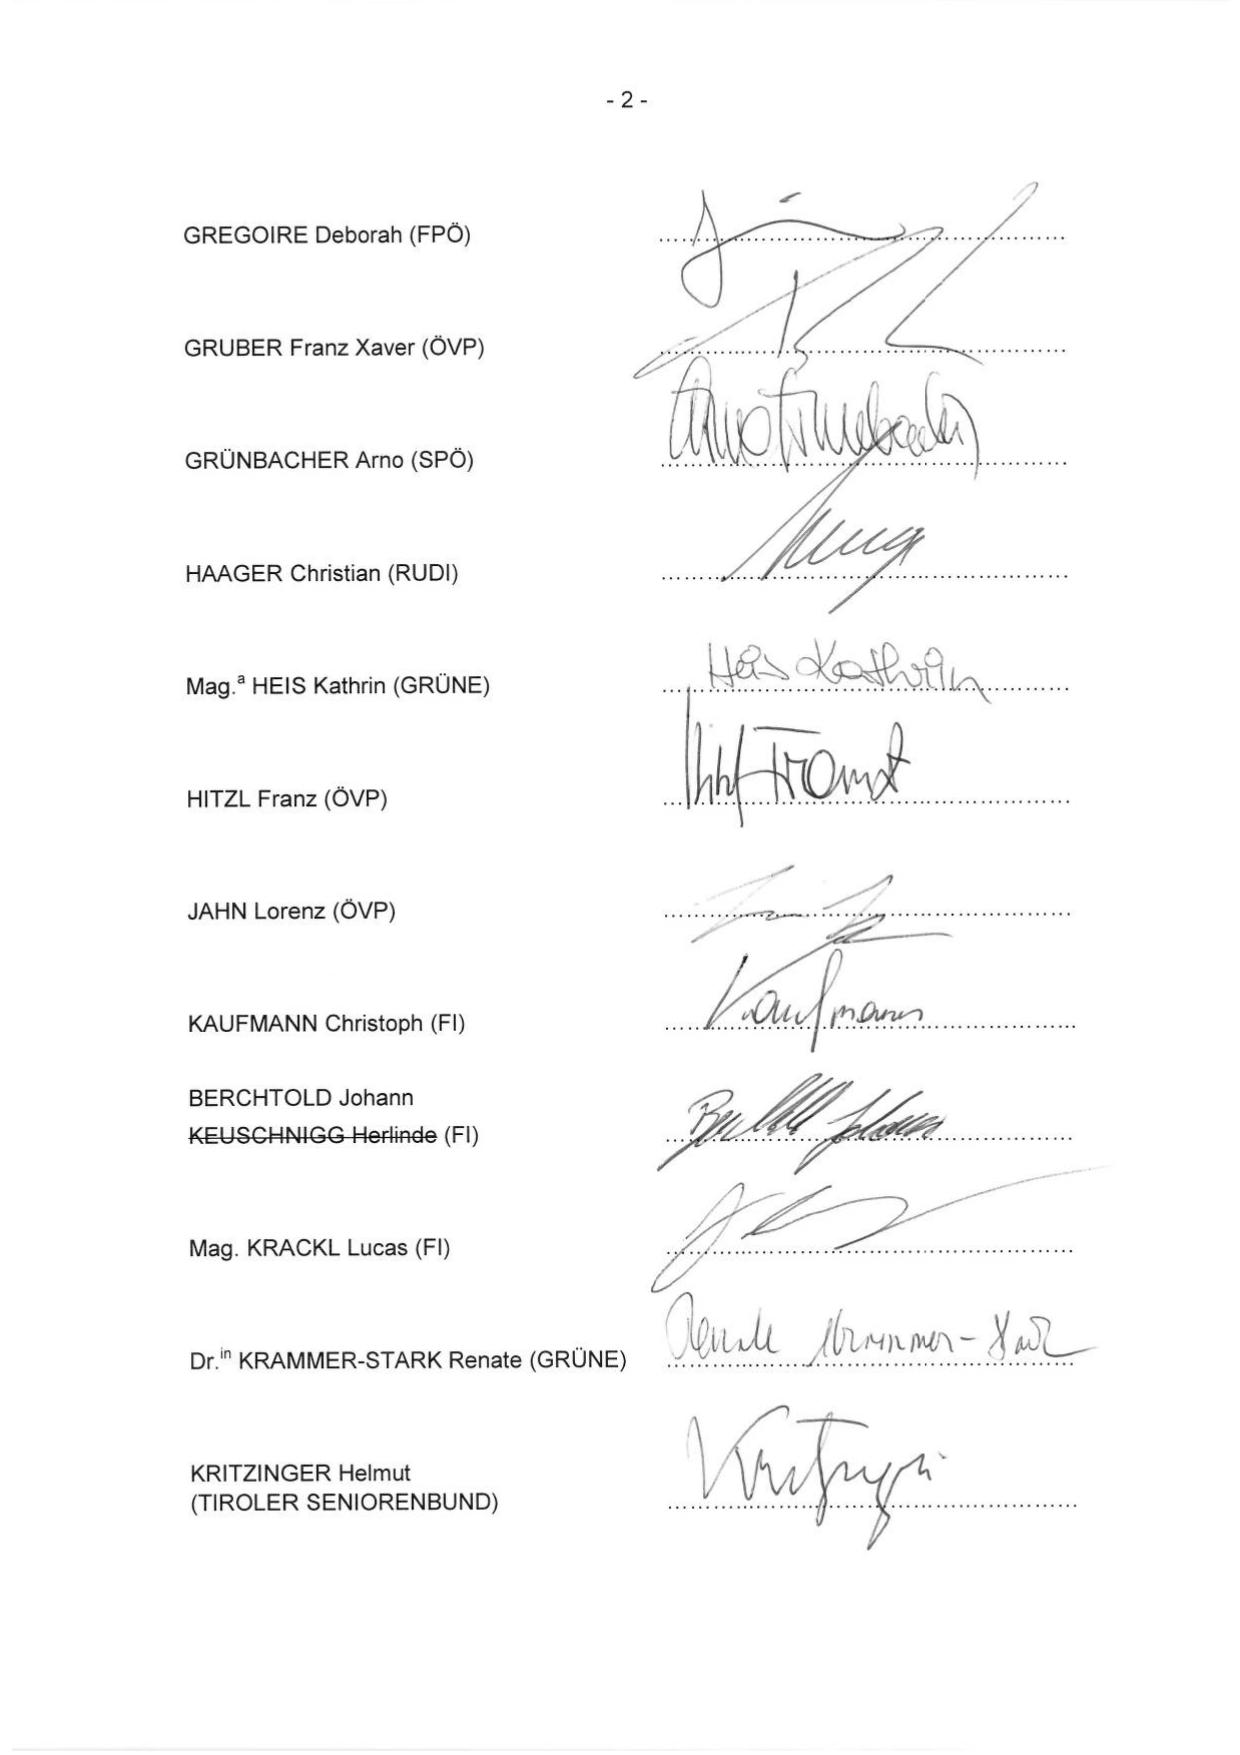 - 2 -
GREGOIRE Deborah (FPÖ)
GRUBER Franz Xaver (ÖVP)
GRÜNBACHER Arno (SPÖ)
HAAGER Christian (RUDI)
Mag.ª HEIS Kathrin (GRÜNE) Heis Kathrin
HITZL Franz (ÖVP)
JAHN Lorenz (ÖVP)
KAUFMANN Christoph (FI) Kaufmann
BERCHTOLD Johann
KEUSCHNIGG Herlinde (FI)
Mag. KRACKL Lucas (FI)
Dr.in KRAMMER-STARK Renate (GRÜNE) Renate Krammer-Stark
KRITZINGER Helmut Kritzinger
(TIROLER SENIORENBUND)